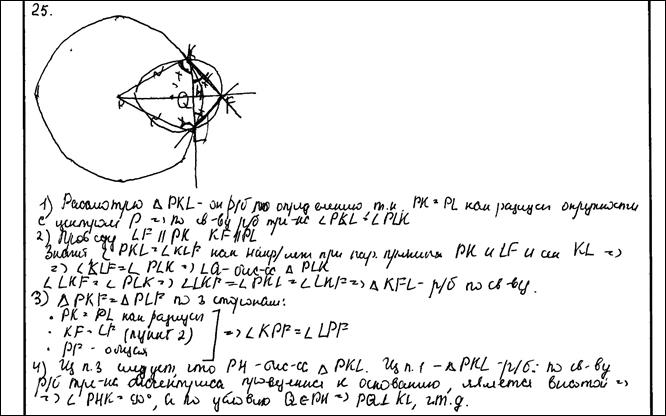 25.
1) Рассмотрю △ PKL - он р/б по определению т.к. PK = PL как радиусы окружности
с центром P => по св-ву р/б тре-ка ∠PKL = ∠PLK
2) Проведу LF || PK KF || PL
Значит ∠PKL = ∠KLF как накр/леж при пар. прямых PK и LF и сек KL =>
=> ∠KLF = ∠PLK => LQ - бис-са △ PLK
∠LKF = ∠PLK => ∠LKF = ∠PKL = ∠LKF => △ KFL - р/б по св-ву.
3) △ PKF = △ PLF по 3 сторонам:
· PK = PL как радиусы
· KF = LF (пункт 2)
· PF - общая
=> ∠KPF = ∠LPF
4) Из п.3 следует, что PH - бис-са △ PKL. Из п.1 - △PKL - р/б. по св-ву
р/б тре-ка биссектриса, проведённая к основанию, является высотой =>
=> ∠PHK = 90°, а по условию Q ∈ PH => PQ ⊥ KL, ч.т.д.